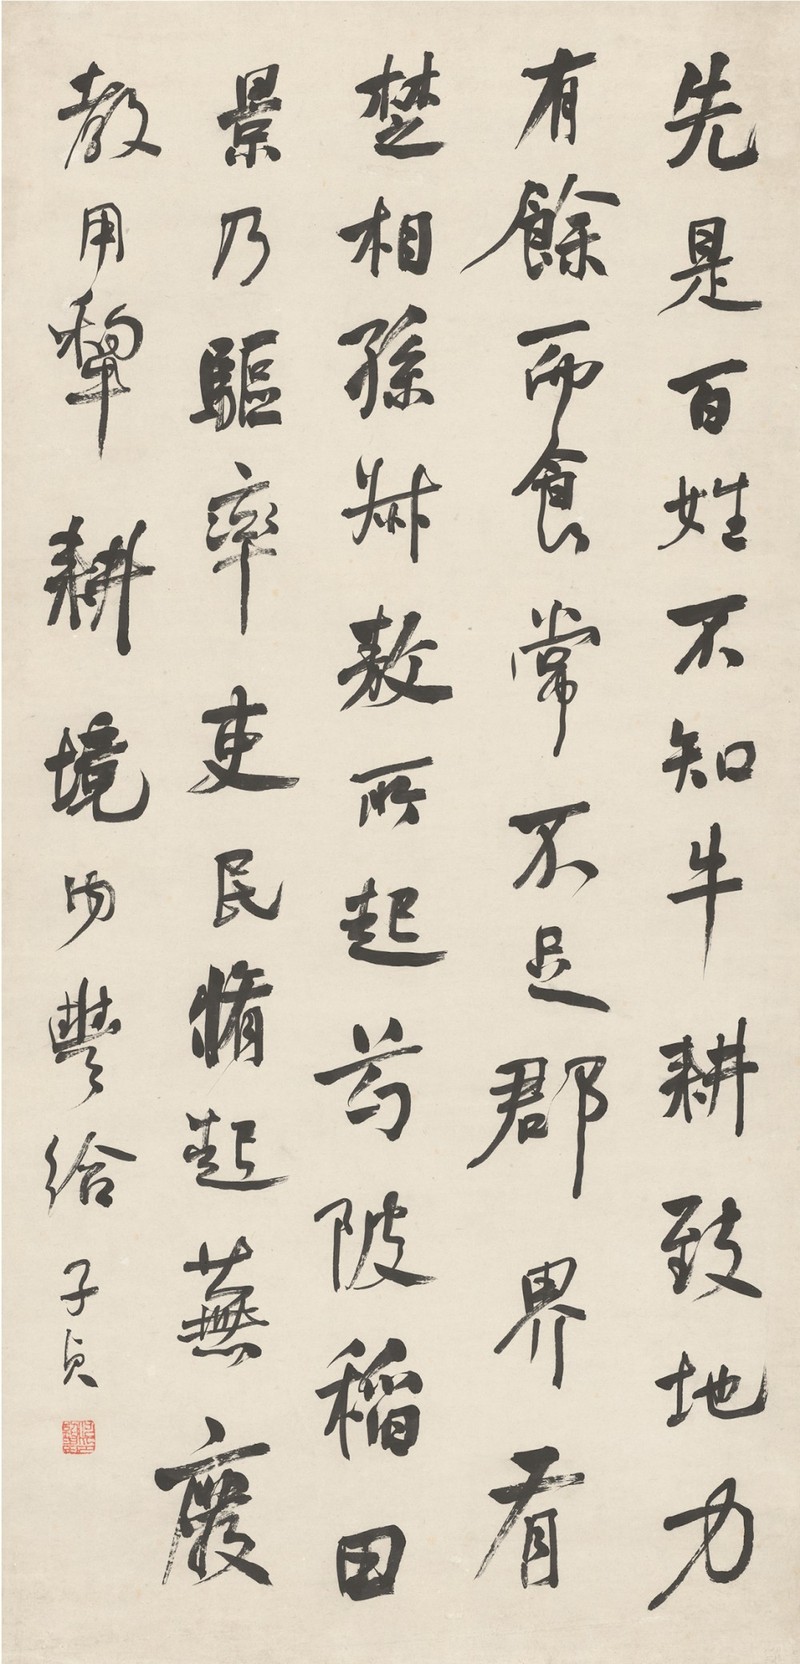 先是百姓不知牛耕致地力
有餘而食常不足郡界有
楚相孫叔敖所起芍陂稻田
景乃驅率吏民脩起蕪廢
教用犂耕境內豐給 子貞